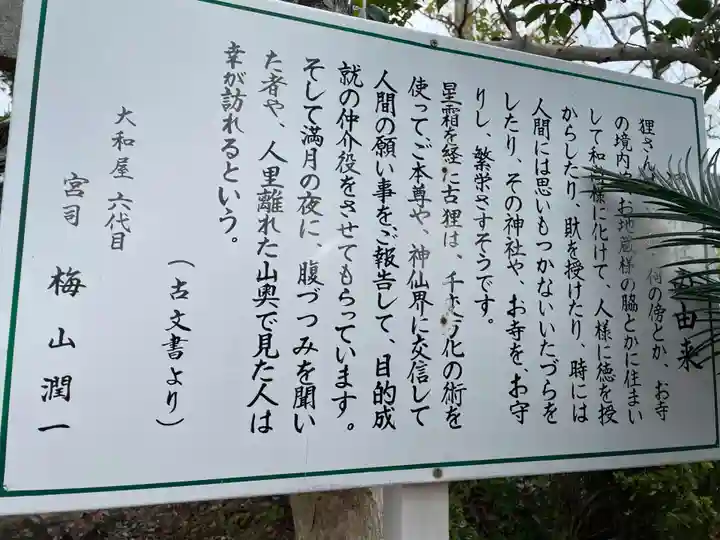 由来
狸さん 祠の傍とか、お寺
の境内やお地蔵様の脇とかに住まい
して和尚様に化けて、人様に徳を授
からしたり、財を授けたり、時には
人間には思いもつかないいたづらを
したり、その神社や、お寺を、お守
りし、繁栄さすそうです。
星霜を経に古狸は、千変万化の術を
使ってご本尊や、神仙界に交信して
人間の願い事をご報告して、目的成
就の仲介役をさせてもらっています。
そして満月の夜に、腹づつみを聞い
た者や、人里離れた山奥で見た人は
幸が訪れるという。
(古文書より)
大和屋 六代目
宮司 梅山潤一